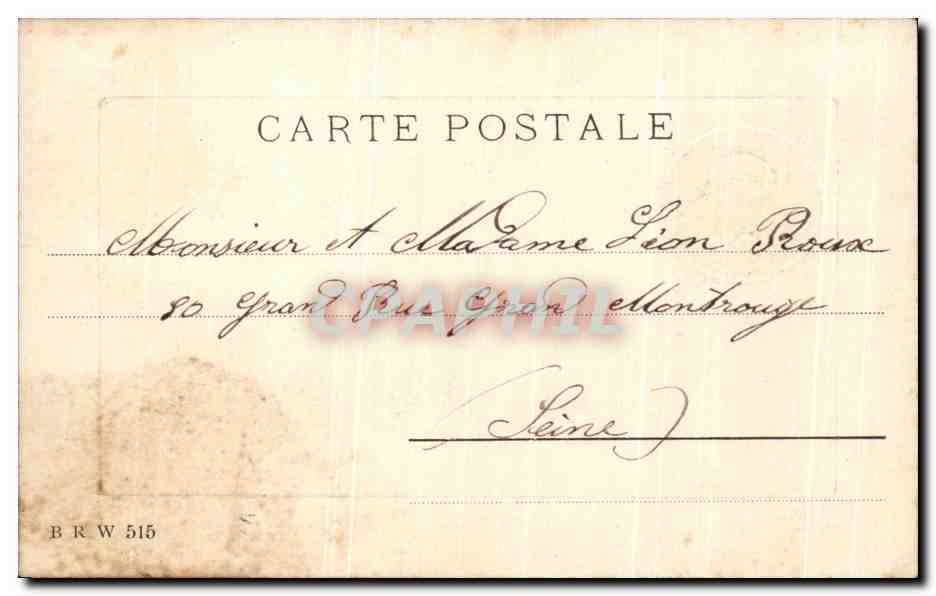 CARTE POSTALE
Monsieur et Madame Léon Roux
90 Grand Rue Grand Montrouge
CPAPHIL
(Seine)
B R W 515